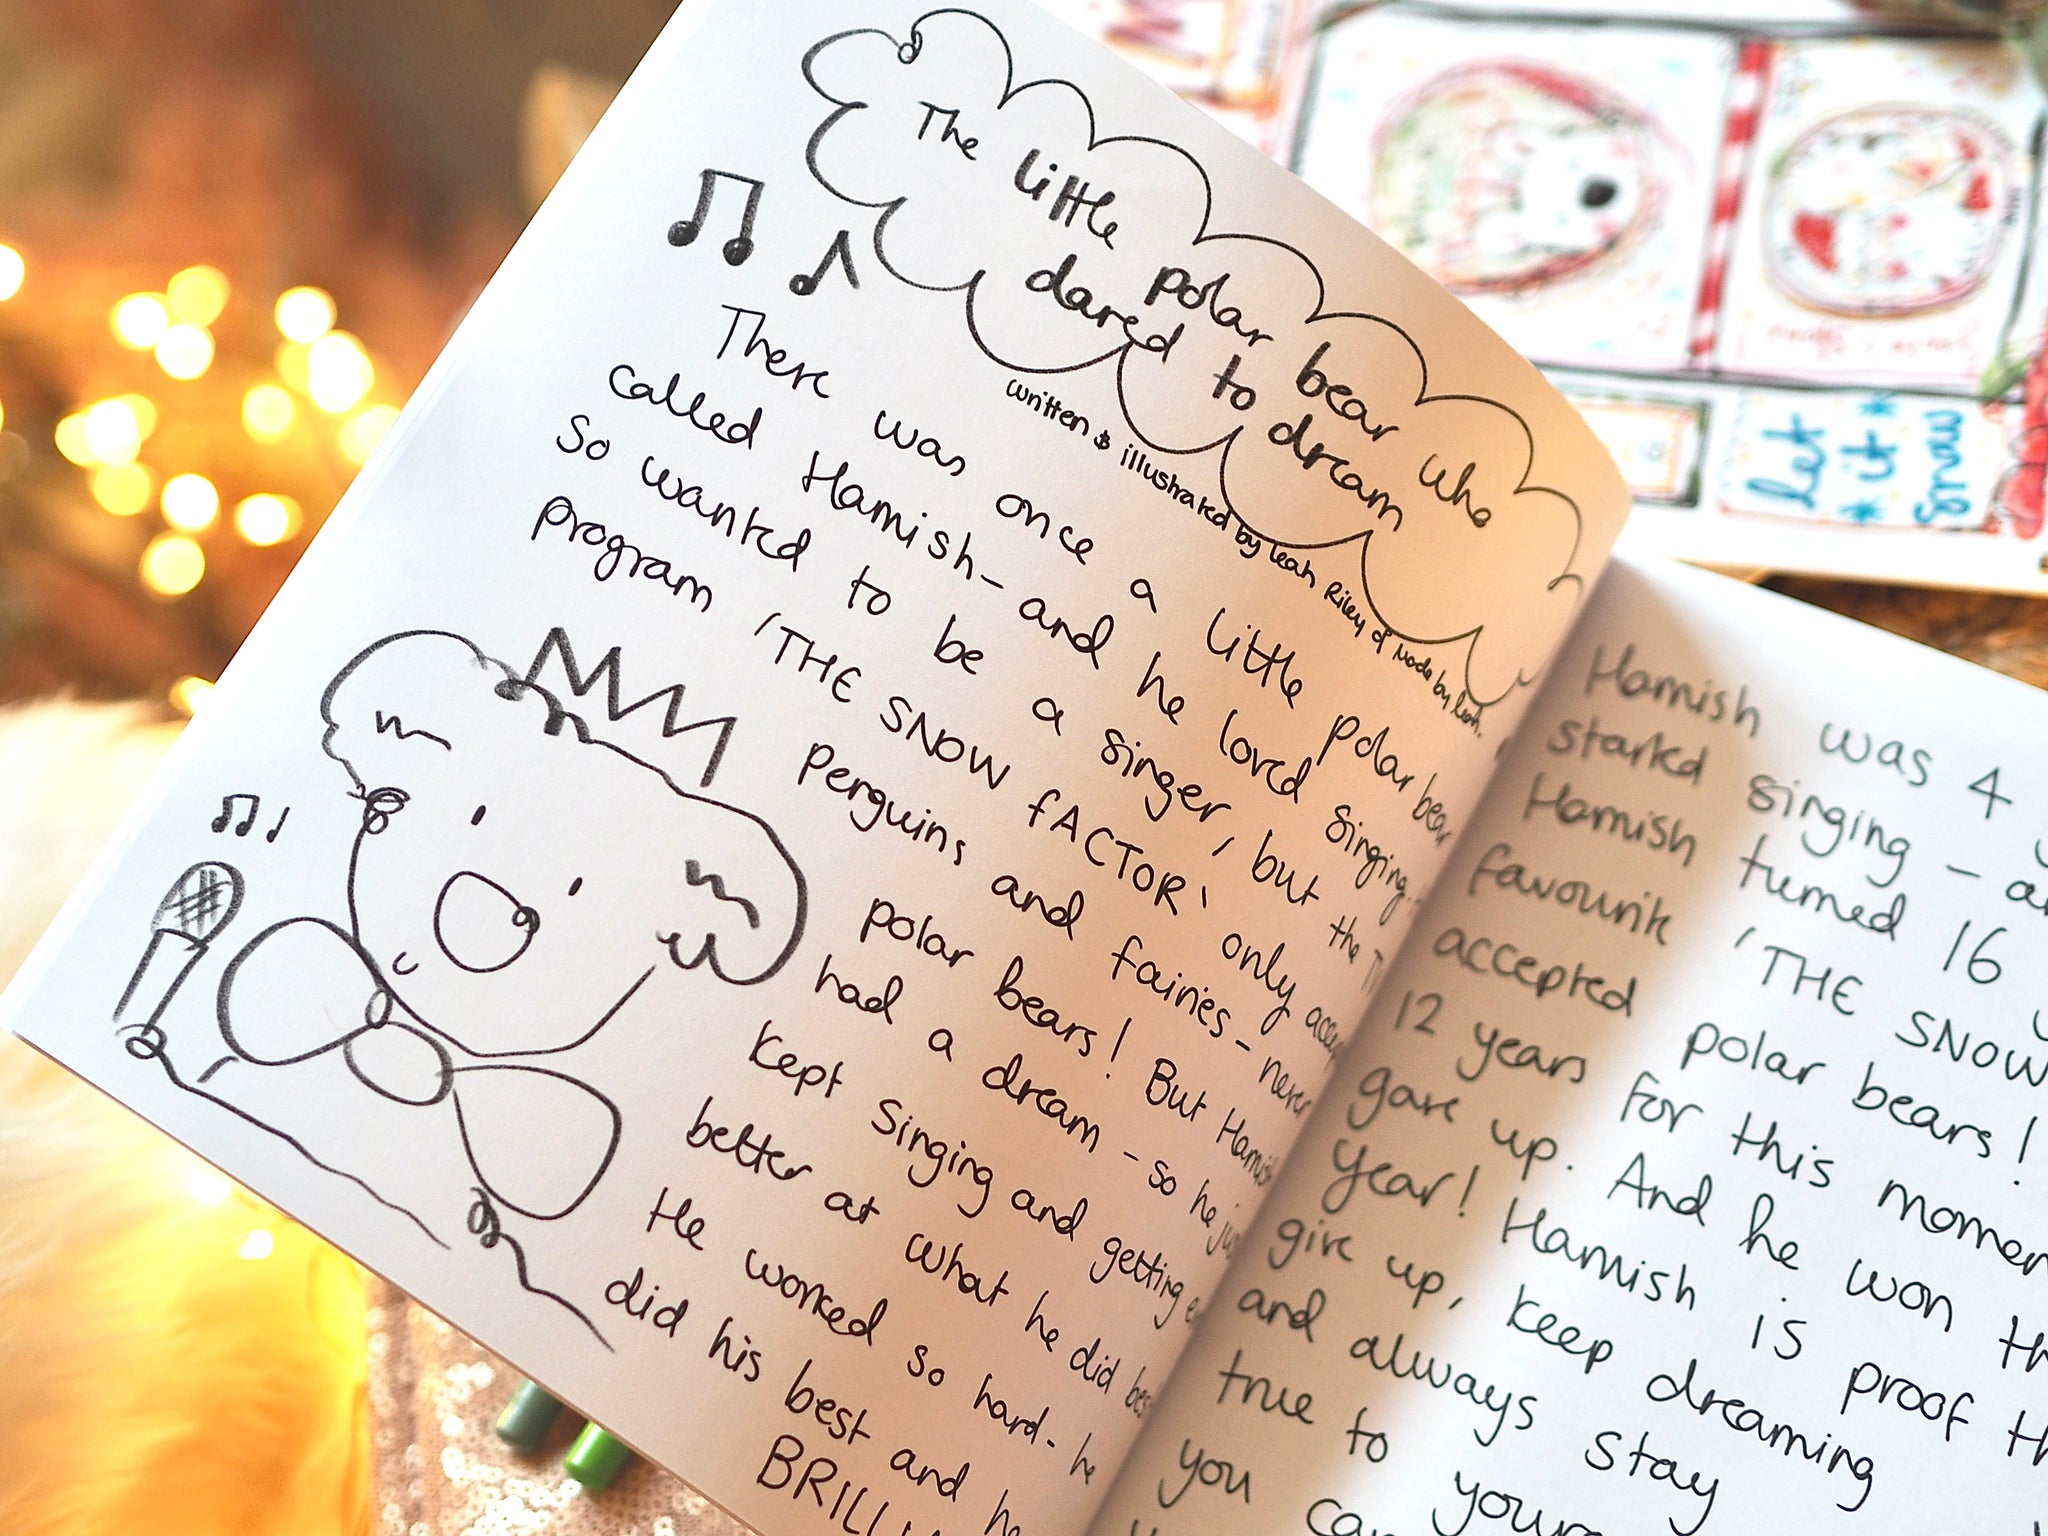 The little polar bear who
dared to dream
written & illustrated by Leah Riley of Made by Leah.
There was once a little polar bear
called Hamish - and he loved singing.
So wanted to be a singer, but the
program 'THE SNOW fACTOR' only
Penguins and fairies - never
polar bears! But Hamish
had a dream - so he
kept singing and getting
better at what he did
He worked so hard - he
did his best and he
Hamish was 4
started singing -
Hamish turned 16
favourite 'THE SNOW
accepted polar bears!
12 years for this
gave up. And he won
year! Hamish is proof
give up, keep dreaming
and always stay
true to
you
let
*it*
snow